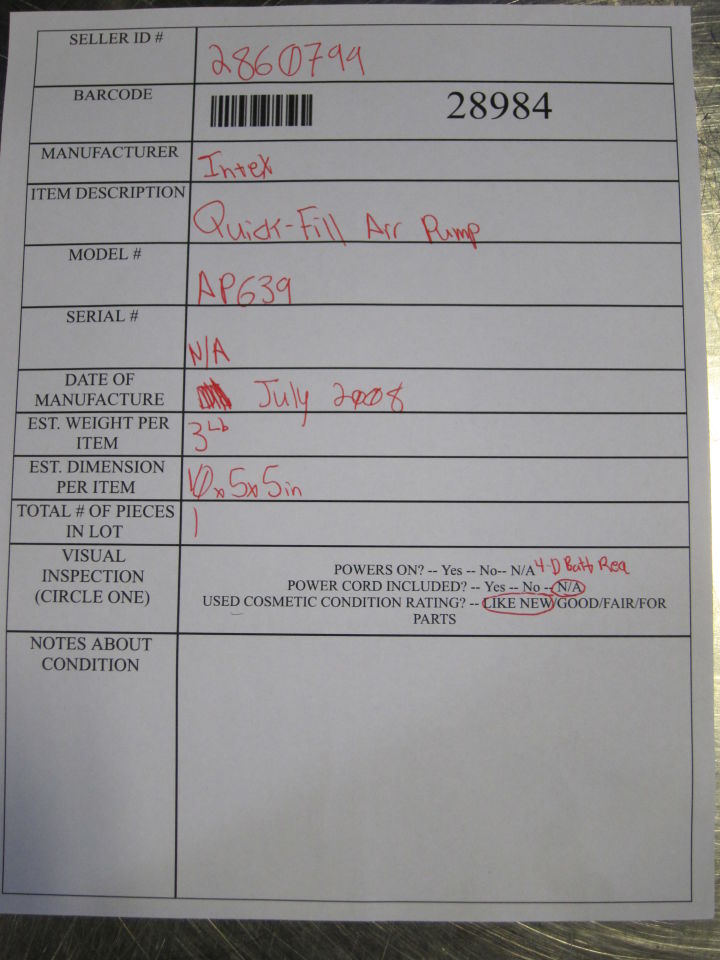 SELLER ID #
2860799
BARCODE
28984
MANUFACTURER
Intex
ITEM DESCRIPTION
Quick-Fill Air Pump
MODEL #
AP639
SERIAL #
N/A
DATE OF
MANUFACTURE
July 2008
EST. WEIGHT PER
ITEM
3 Lb
EST. DIMENSION
PER ITEM
10x5x5in
TOTAL # OF PIECES
IN LOT
1
VISUAL
INSPECTION
(CIRCLE ONE)
POWERS ON? -- Yes -- No-- N/A 4-D Batt Req
POWER CORD INCLUDED? -- Yes -- No -- N/A
USED COSMETIC CONDITION RATING? -- LIKE NEW/GOOD/FAIR/FOR
PARTS
NOTES ABOUT
CONDITION